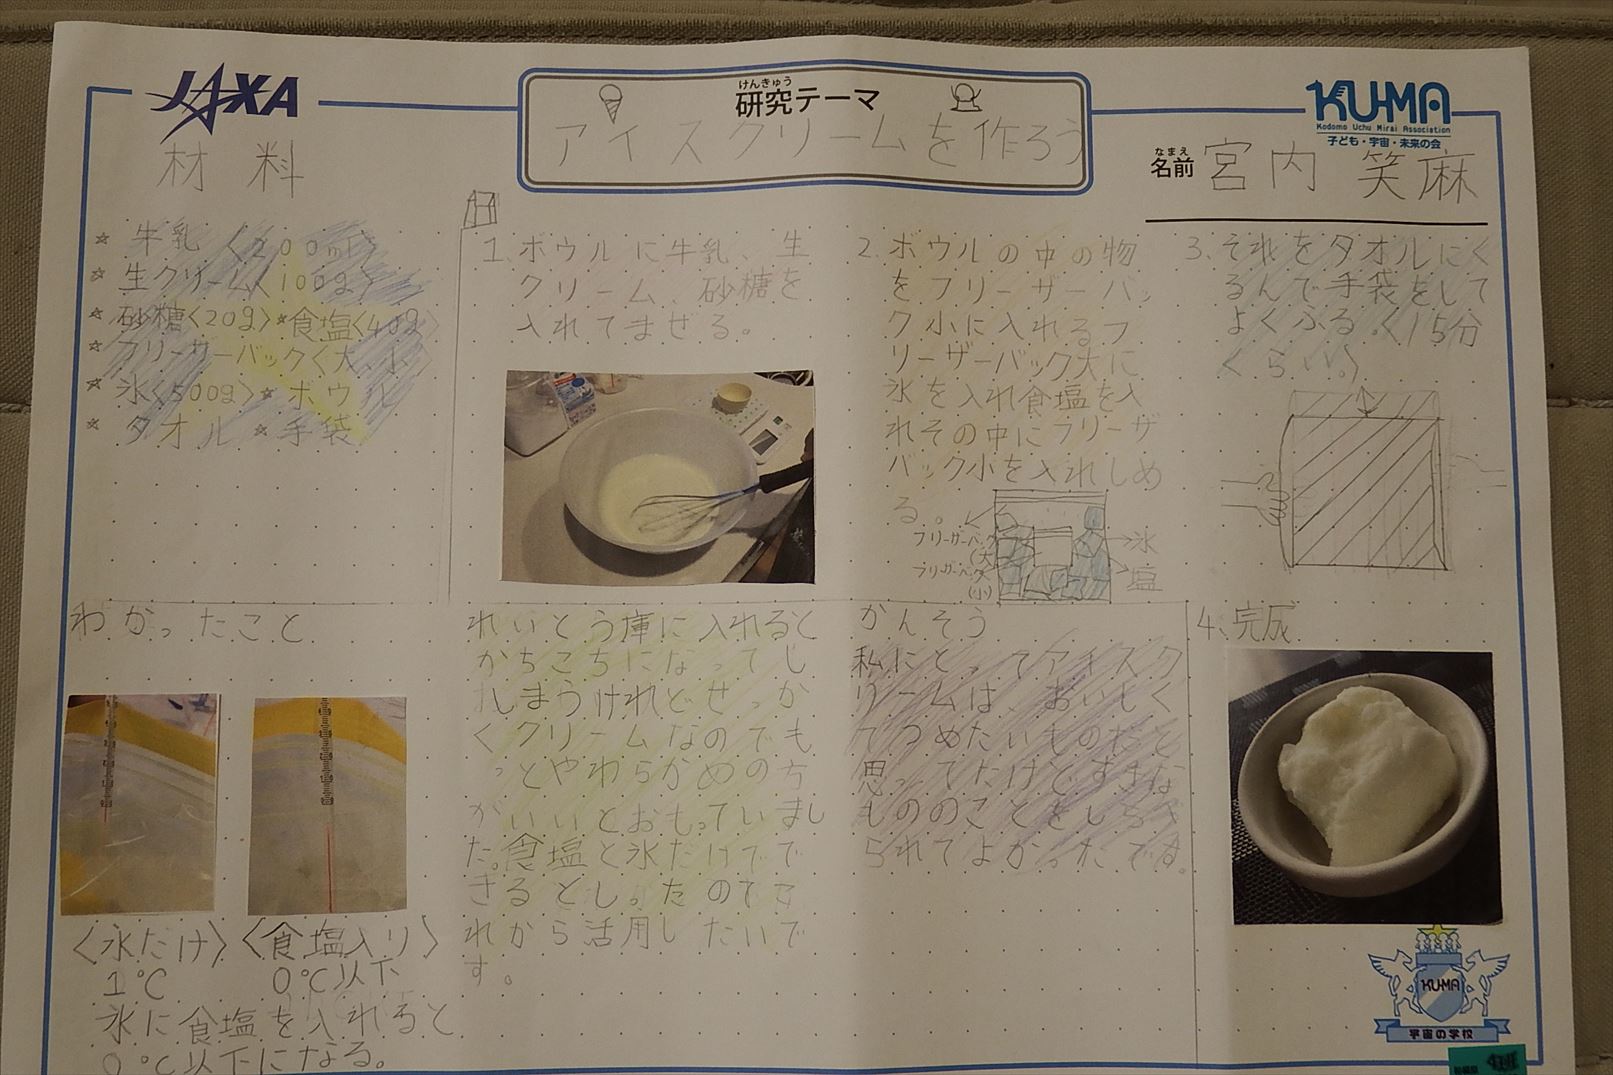 JAXA
けんきゅう
研究テーマ
アイスクリームを作ろう
KU-MA
Kodomo Uchu Mirai Association
子ども・宇宙・未来の会
なまえ
名前 宮内 笑麻
材料
☆ 牛乳〈200ml〉
☆ 生クリーム〈100g〉
☆ 砂糖〈20g〉☆食塩〈40g〉
☆ フリーザーバック〈大、小
☆ 氷〈500g〉☆ ボウル
☆ タオル ☆ 手袋
1. ボウルに牛乳、生
クリーム、砂糖を
入れてまぜる。
2. ボウルの中の物
をフリーザーバッ
ク小に入れるフ
リーザーバック大に
氷を入れ食塩を入
れその中にフリーザ
バック小を入れしめ
る。
フリーザーバック
(大)
フリーザーバック
(小)
氷
塩
3. それをタオルにく
るんで手袋をして
よくふる。〈15分
くらい。〉
わかったこと
〈氷だけ〉〈食塩入り〉
1℃ 0℃以下
氷に食塩を入れると
0℃以下になる。
れいとう庫に入れると
かちこちになってし
まうけれどせっか
くクリームなのでも
っとやわらかめの方
がいいとおもっていまし
た。食塩と氷だけでで
きると
れから活用したいで
す。
かんそう
私にとってアイスク
リームは、おいしく
てつめたいものだと
思ってたけどすきな
もののことをしらべ
られてよかったです。
4. 完成
KU-MA
宇宙の学校